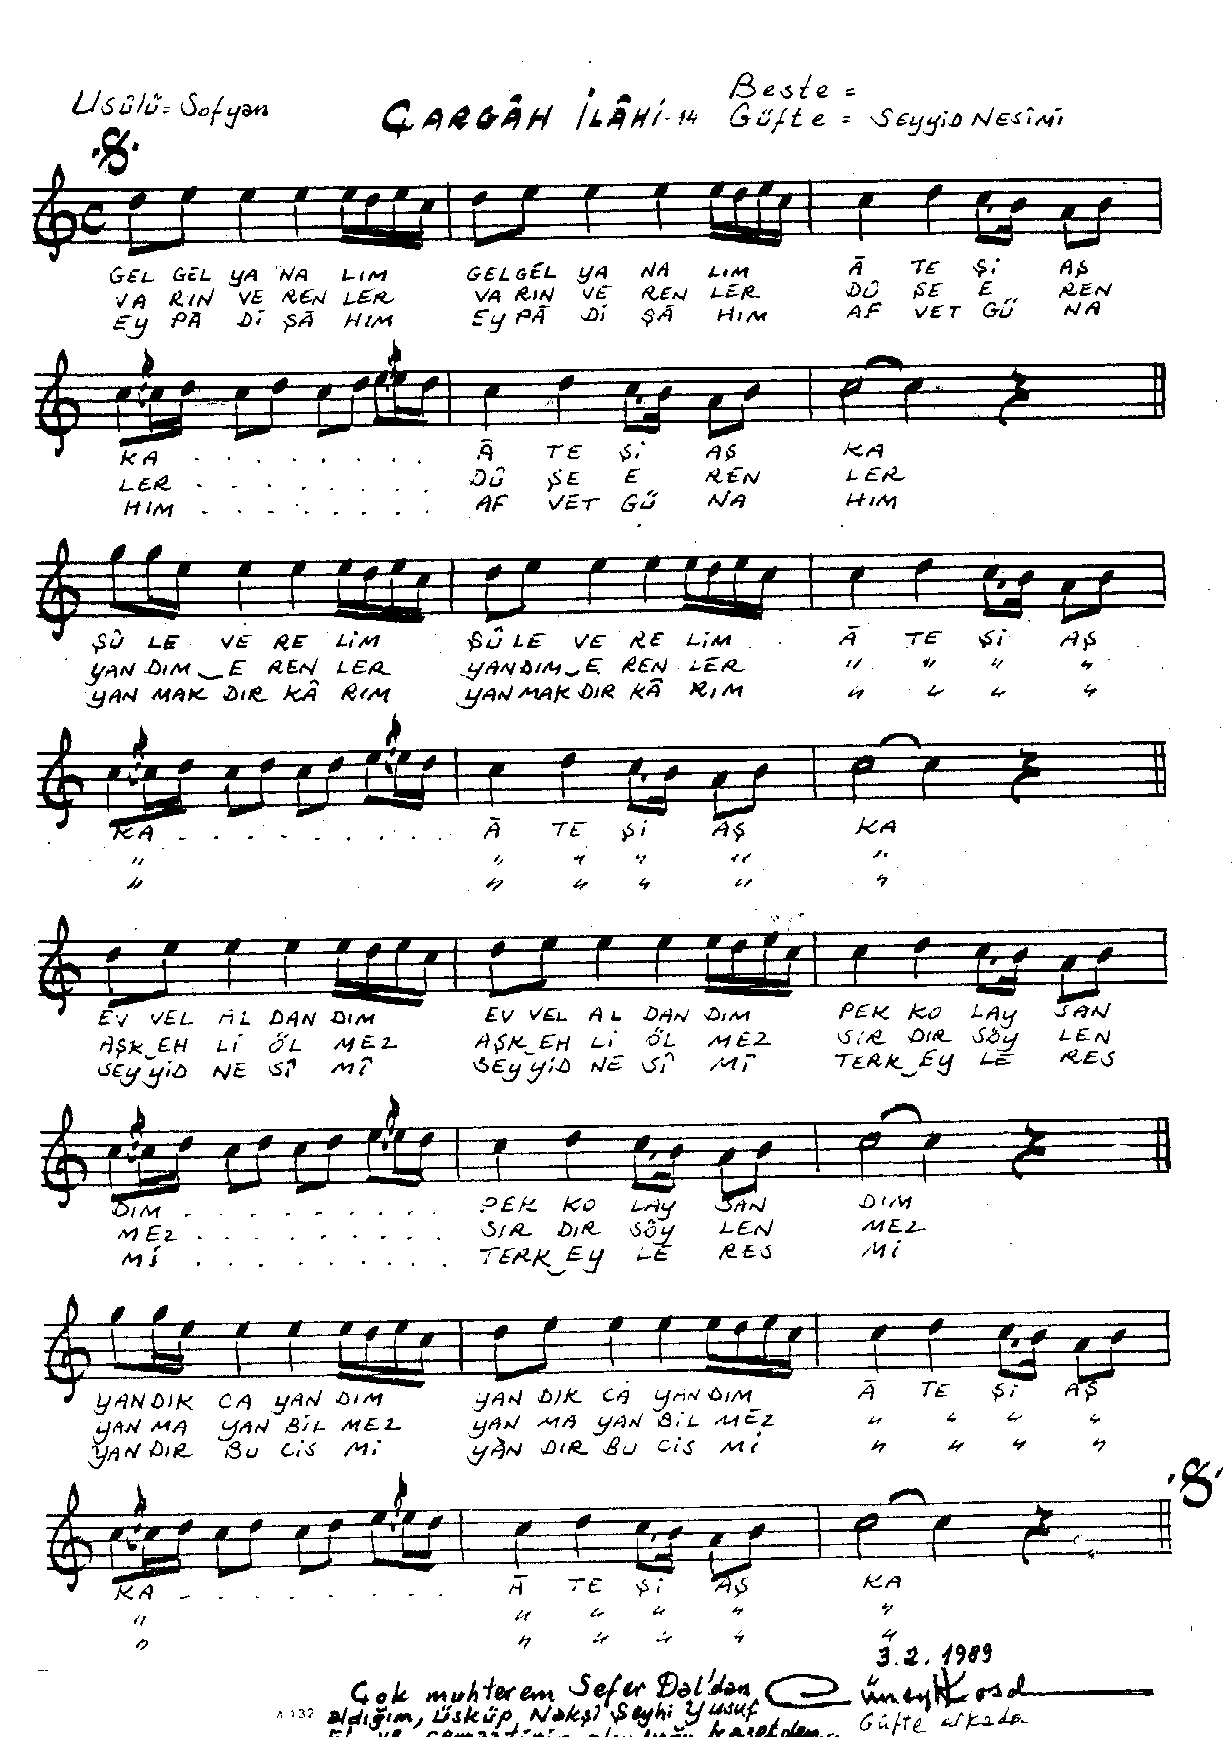 Usûlü = Sofyan
ÇARGÂH İLÂHİ - 14
Beste =
Güfte = SEYYİD NESÎMİ
GEL GEL YA NA LIM GEL GEL YA NA LIM Ā TE Şİ AŞ
VA RIN VE REN LER VA RIN VE REN LER DÛ ŞE E REN
EY PĀ Dİ ŞĀ HIM EY PĀ Dİ ŞĀ HIM AF VET GÜ NA
KA . . . . . . . . Ā TE Şİ AŞ KA
LER . . . . . . . . DÛ ŞE E REN LER
HIM . . . . . . . . AF VET GÜ NA HIM
ŞÛ LE VE RE LİM ŞÛ LE VE RE LİM Ā TE Şİ AŞ
YAN DIM_E REN LER YAN DIM_E REN LER " " " "
YAN MAK DIR KÂ RIM YAN MAK DIR KÂ RIM " " " "
KA . . . . . . . . Ā TE Şİ AŞ KA
" " " " " "
" " " " " "
EV VEL AL DAN DIM EV VEL AL DAN DIM PEK KO LAY SAN
AŞK_EH Lİ ÖL MEZ AŞK_EH Lİ ÖL MEZ SIR DIR SÖY LEN
SEY YİD NE SÎ MÎ SEY YİD NE SÎ MÎ TERK_EY LE RES
DIM . . . . . . . . PEK KO LAY SAN DIM
MEZ . . . . . . . . . SIR DIR SÖY LEN MEZ
Mİ . . . . . . . . . TERK_EY LE RES Mİ
YAN DIK CA YAN DIM YAN DIK CA YAN DIM Ā TE Şİ AŞ
YAN MA YAN BİL MEZ YAN MA YAN BİL MEZ " " " "
YAN DIR BU CİS Mİ YAN DIR BU CİS Mİ " " " "
KA . . . . . . . . Ā TE Şİ AŞ KA
" " " " " "
" " " " " "
3.2.1989
Çok muhterem Sefer Dal'dan
A 132 aldığım, Üsküp Nakşî Şeyhi Yusuf
Güfte arkada